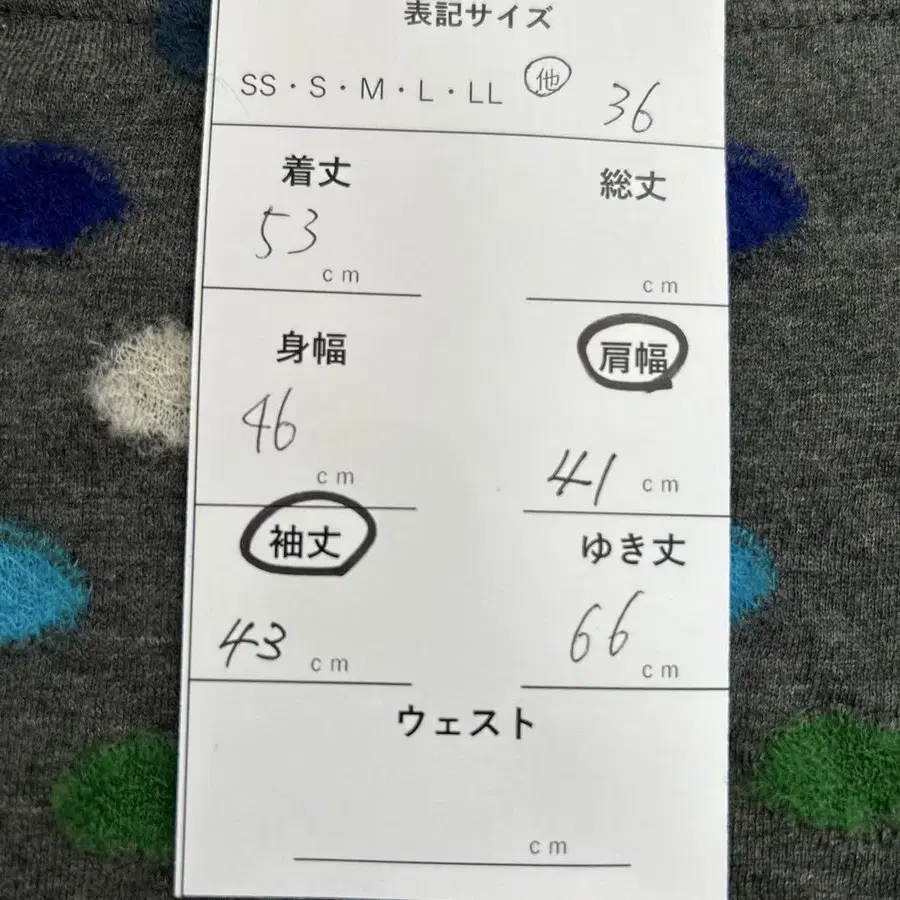 表記サイズ
SS・S・M・L・LL 他 36
着丈 総丈
53 cm cm
身幅 肩幅
46 cm 41 cm
袖丈 ゆき丈
43 cm 66 cm
ウェスト
cm